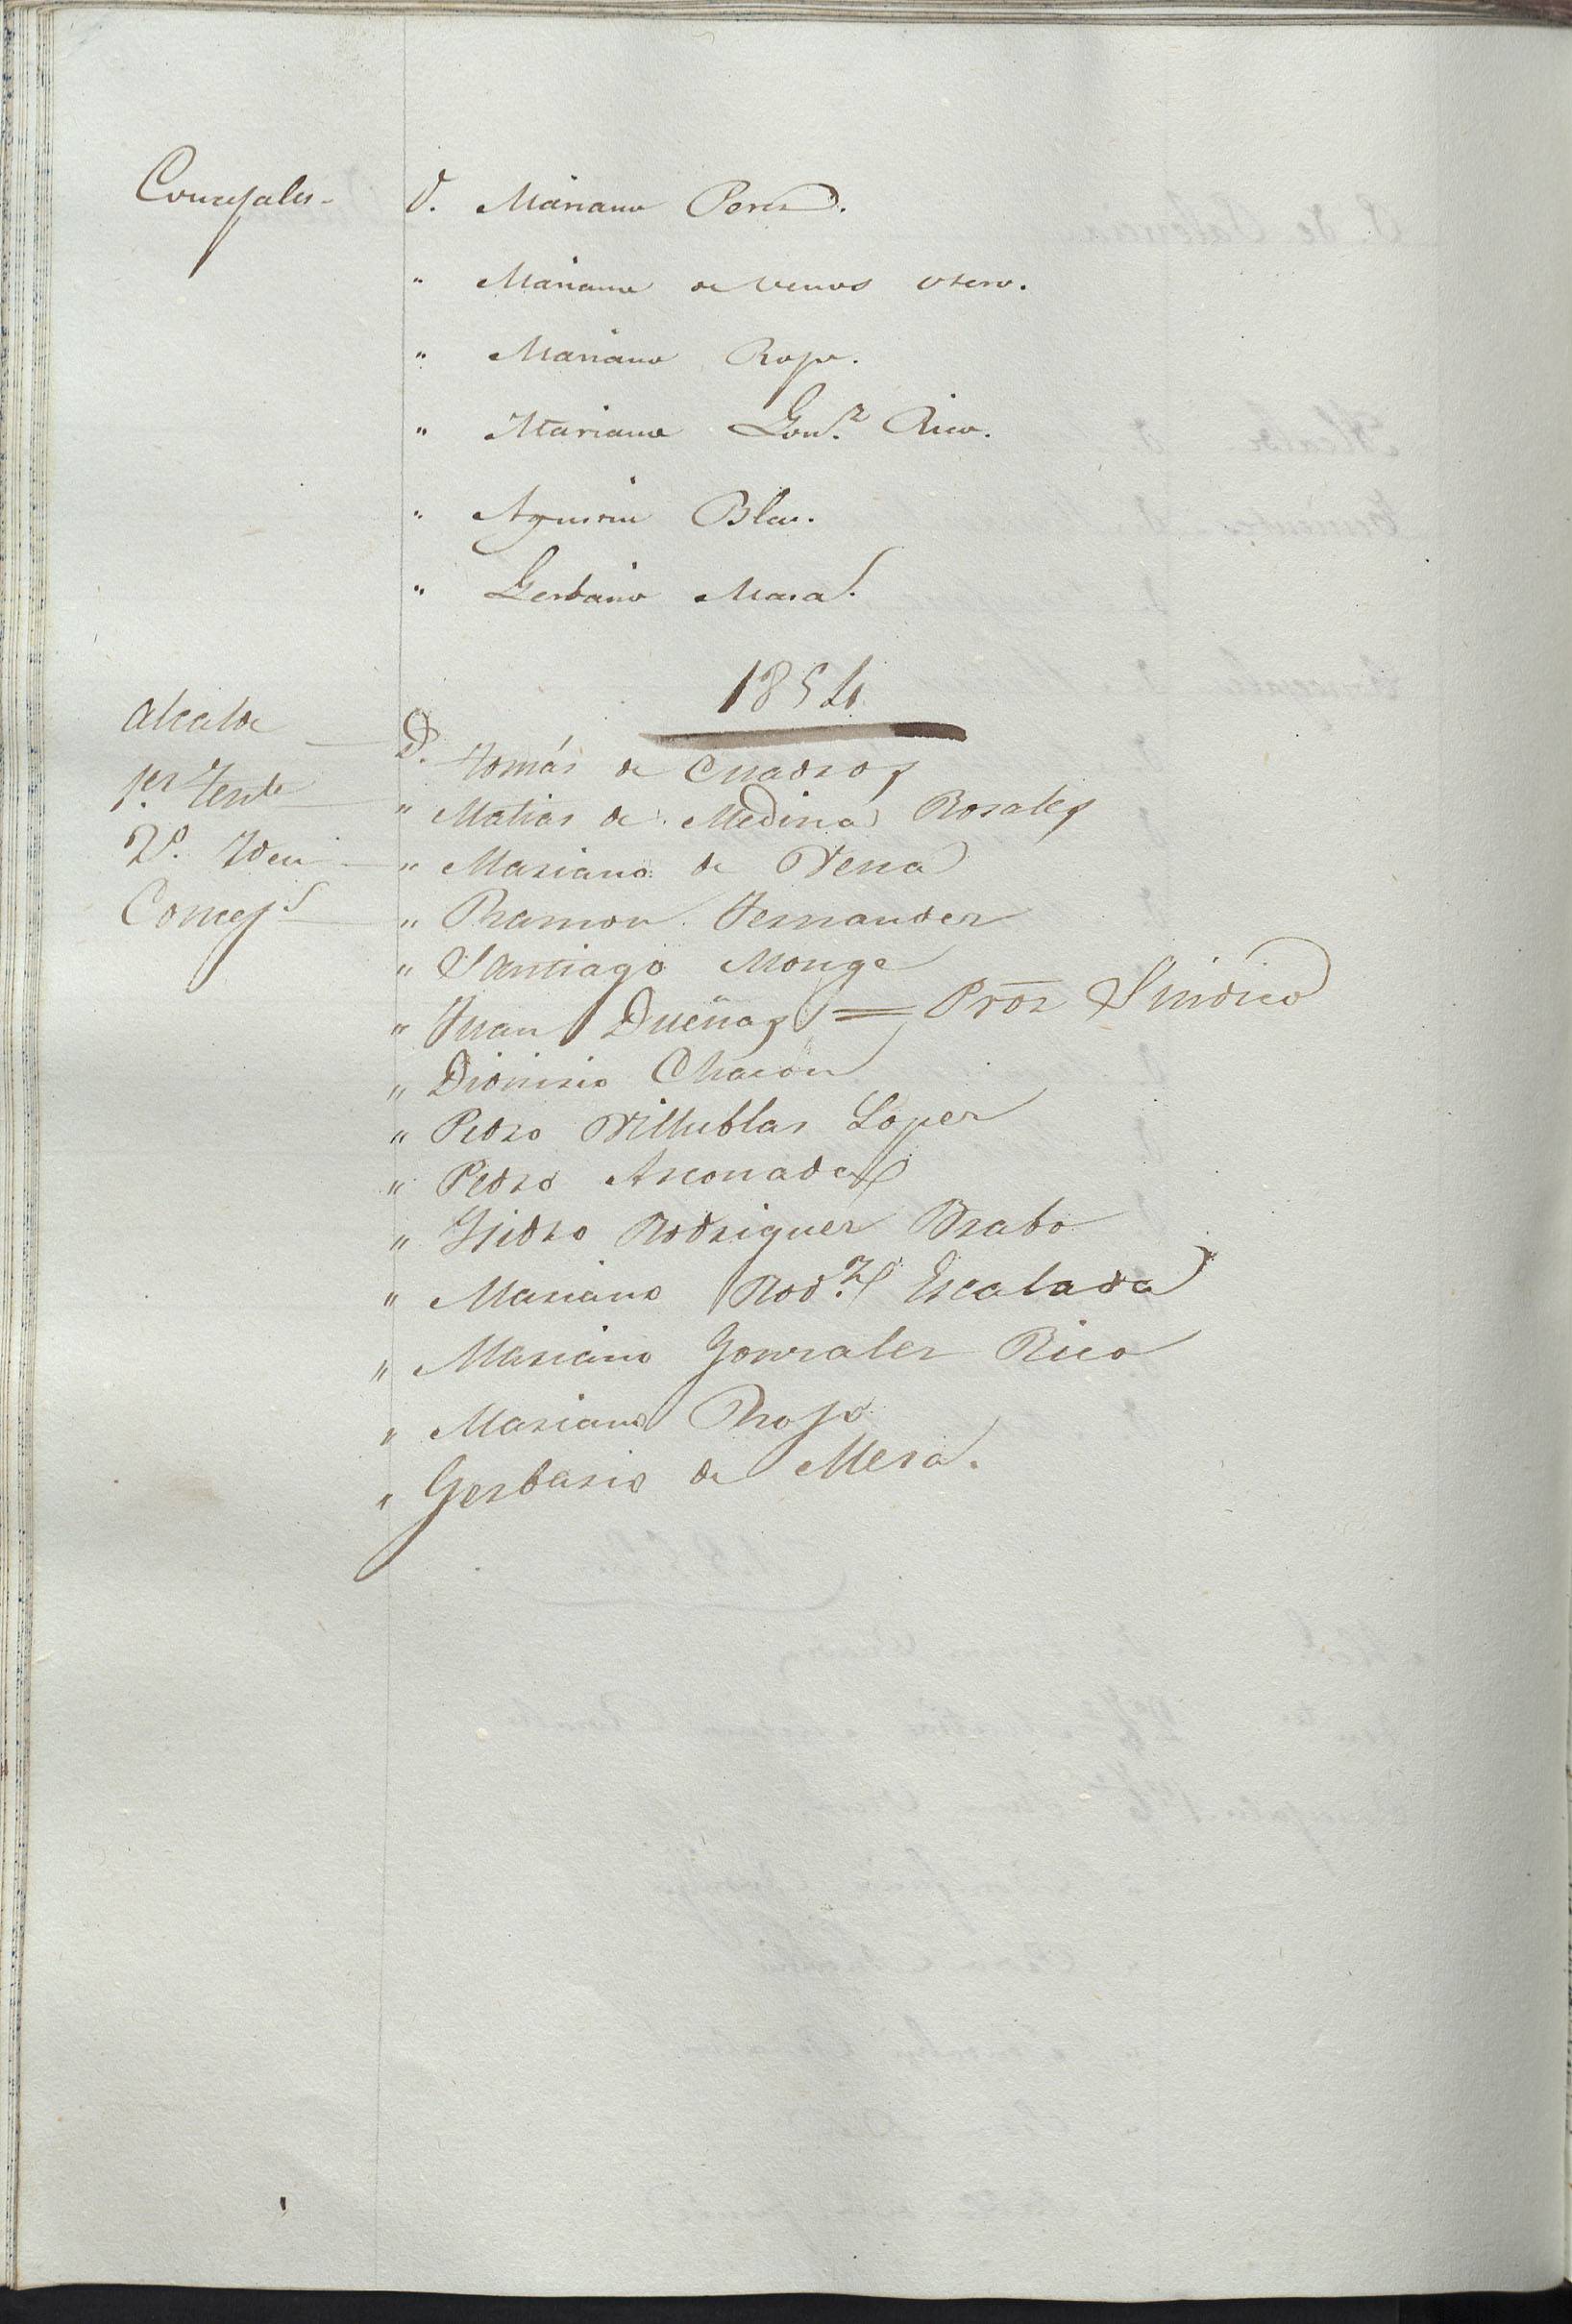 Concejales - D. Mariano Perez.
" Mariano de Venas otero.
" Mariano Rojo.
" Mariano Gonz. Rico.
" Agustin Blan.
" Gerbasio Mesa.
1854
Alcalde D. Tomás de Cuadros
1er Tente " Matias de Medina Rosales
2º. Idem " Mariano de
Concejs " Ramon Fernandez
" Santiago Monge
" Juan Dueñas = Pror Sindico
" Dionisio Chacon
" Pedro Villublas Lopez
" Pedro Asconades
" Isidro Rodriguez Brabo
" Mariano Rodz. Escalada
" Mariano Gonzalez Rico
" Mariano Rojo
" Gerbasio de Mesa.